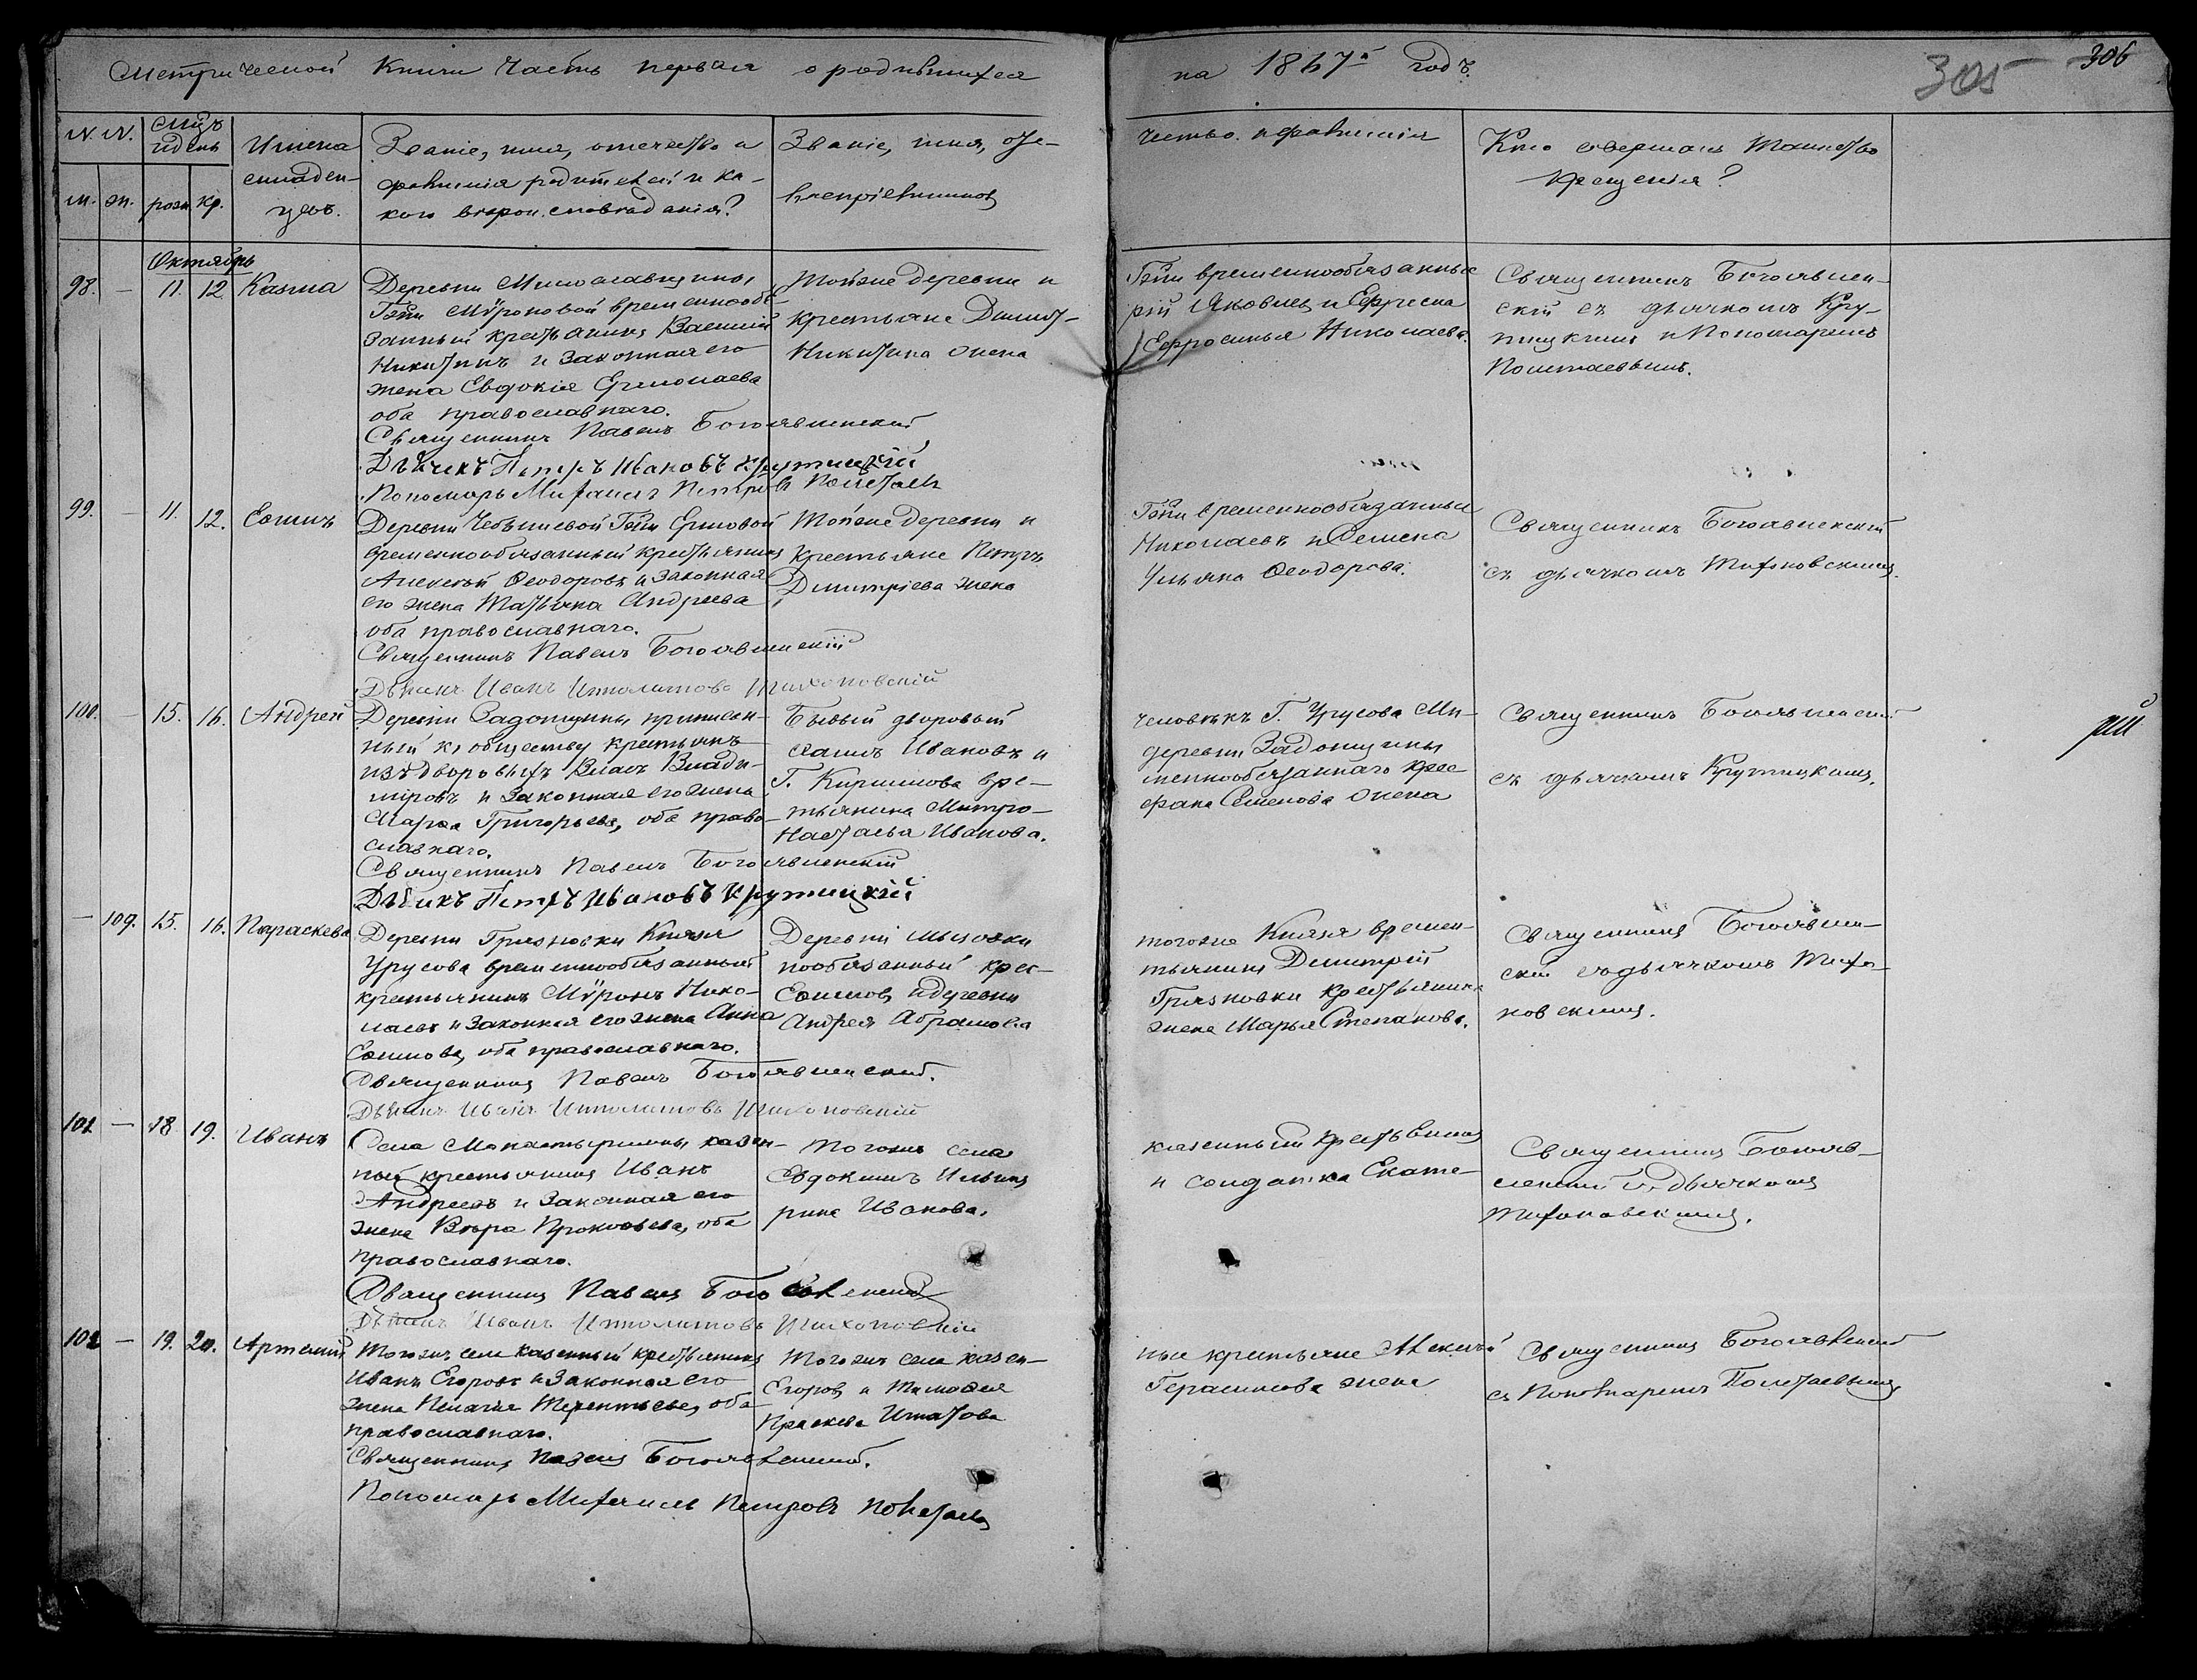 Метрической Книги Часть первая о родившихся
на 1867й годъ.
305
306
N. N.
м. ж.
Мѣс. и день
рожд. кр.
Имена
младен-
цевъ.
Званіе, имя, отчество и
фамилія родителей и ка-
кого вѣроисповѣданія?
Званіе, имя, оте-
чество и фамилія
воспріемниковъ
Кто совершалъ Таинство
Крещенія?
Октябрь
98. — 11. 12 Казма
Деревни Милославщины,
Гжи Мѵроновой временнообя-
занный крестьянинъ Василій
Никитинъ и законная его
жена Евдокія Ермолаева
оба православнаго.
Священникъ Павелъ Богоявленскій
Дьячекъ Петръ Ивановъ Крутицкій
Пономарь Михаилъ Петровъ Полетаевъ
Тойже деревни и
Гжи временнообязанные
крестьяне Димит-
рій Яковлевъ и Ефрема
Никитина жена
Ефросинья Николаева.
Священникъ Богоявлен-
скій съ дьячкомъ Кру-
тицкимъ и Пономаремъ
Полетаевымъ.
99. — 11. 12. Еоимъ
Деревни Гжи Ермовой
временнообязанный крестьянинъ
Алексѣй Ѳеодоровъ и законная
его жена Татьяна Андреева
оба православнаго.
Священникъ Павелъ Богоявленскій
Дьячекъ Иванъ Ипполитовъ Тихоновскій
Тойже деревни и
Гжи временнообязанные
крестьяне Петръ
Николаевъ и Семена
Димитріева жена
Ульяна Ѳеодорова.
Священникъ Богоявленскій
съ дьячкомъ Тихоновскимъ.
100. — 15. 16. Андрей
Деревни Задонщины приписан-
ный къ обществу крестьянъ
изъ дворовыхъ Власъ Влади-
міровъ и законная его жена
Марѳа Григорьева, оба право-
славнаго.
Священникъ Павелъ Богоявленскій
Дьячекъ Петръ Ивановъ Крутицкій
Бывый дворовый
человѣкъ Г. Урусова Ми-
хаилъ Ивановъ и
деревни Задонщины
Г. Кирилова вре-
меннообязаннаго крес-
тьянина Митро-
фана Семенова жена
Настасья Иванова.
Священникъ Богоявленскій
съ дьячкомъ Крутицкимъ.
— 109. 15. 16. Параскева
Деревни Грязновки Князя
Урусова временнообязанный
крестьянинъ Мѵронъ Нико-
лаевъ и законная его жена Анна
Еоимова, оба православнаго.
Священникъ Павелъ Богоявленскій.
Дьячекъ Иванъ Ипполитовъ Тихоновскій
Деревни
тогоже Князя времен-
нообязанный крес-
тьянинъ Димитрій
Еоимовъ и деревни
Грязновки крестьянина
Андрея Абрамова
жена Марья Степанова.
Священникъ Богоявлен-
скій съ дьячкомъ Тихо-
новскимъ.
101 — 18 19. Иванъ
Села Монастыршины казен-
ный крестьянинъ Иванъ
Андреевъ и законная его
жена Вѣра Прокоѳьева, оба
православнаго.
Священникъ Павелъ Богоявленскій
Дьячекъ Иванъ Ипполитовъ Тихоновскій
Тогоже села
казенный крестьянинъ
Евдокимъ Ильинъ
и солдатка Екате-
рина Иванова.
Священникъ Богояв-
ленскій съ дьячкомъ
Тихоновскимъ.
102 — 19. 20. Артемій
Тогожъ села казенный крестьянинъ
Иванъ Егоровъ и законная его
жена Пелагія Терентьева, оба
православнаго.
Священникъ Павелъ Богоявленскій.
Пономарь Михаилъ Петровъ Полетаевъ
Тогожъ села казен-
ные крестьяне Алексѣй
Егоровъ и Тимоѳея
Герасимова жена
Праскева
Священникъ Богоявленскій
съ Пономаремъ Полетаевымъ